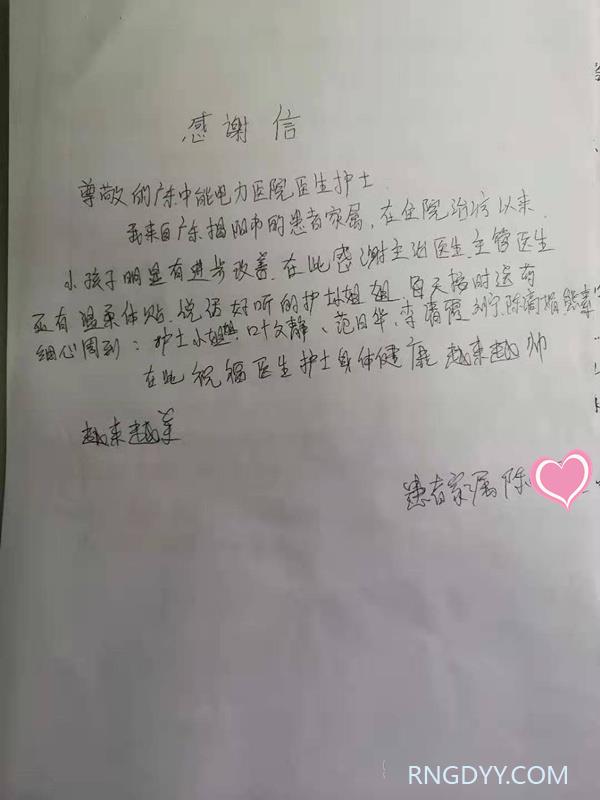 感谢信
尊敬的广东中能电力医院医生护士
我来自广东揭阳市的患者家属,在住院治疗以来
小孩子明显有进步改善.在此感谢主治医生.主管医生
还有温柔体贴.说话好听的护士小姐姐.每天按时送药
细心周到:护士小姐姐:叶文静、范日华、李
在此祝福医生护士身体健康 越来越帅
越来越美
患者家属陈
RNGDYY.COM